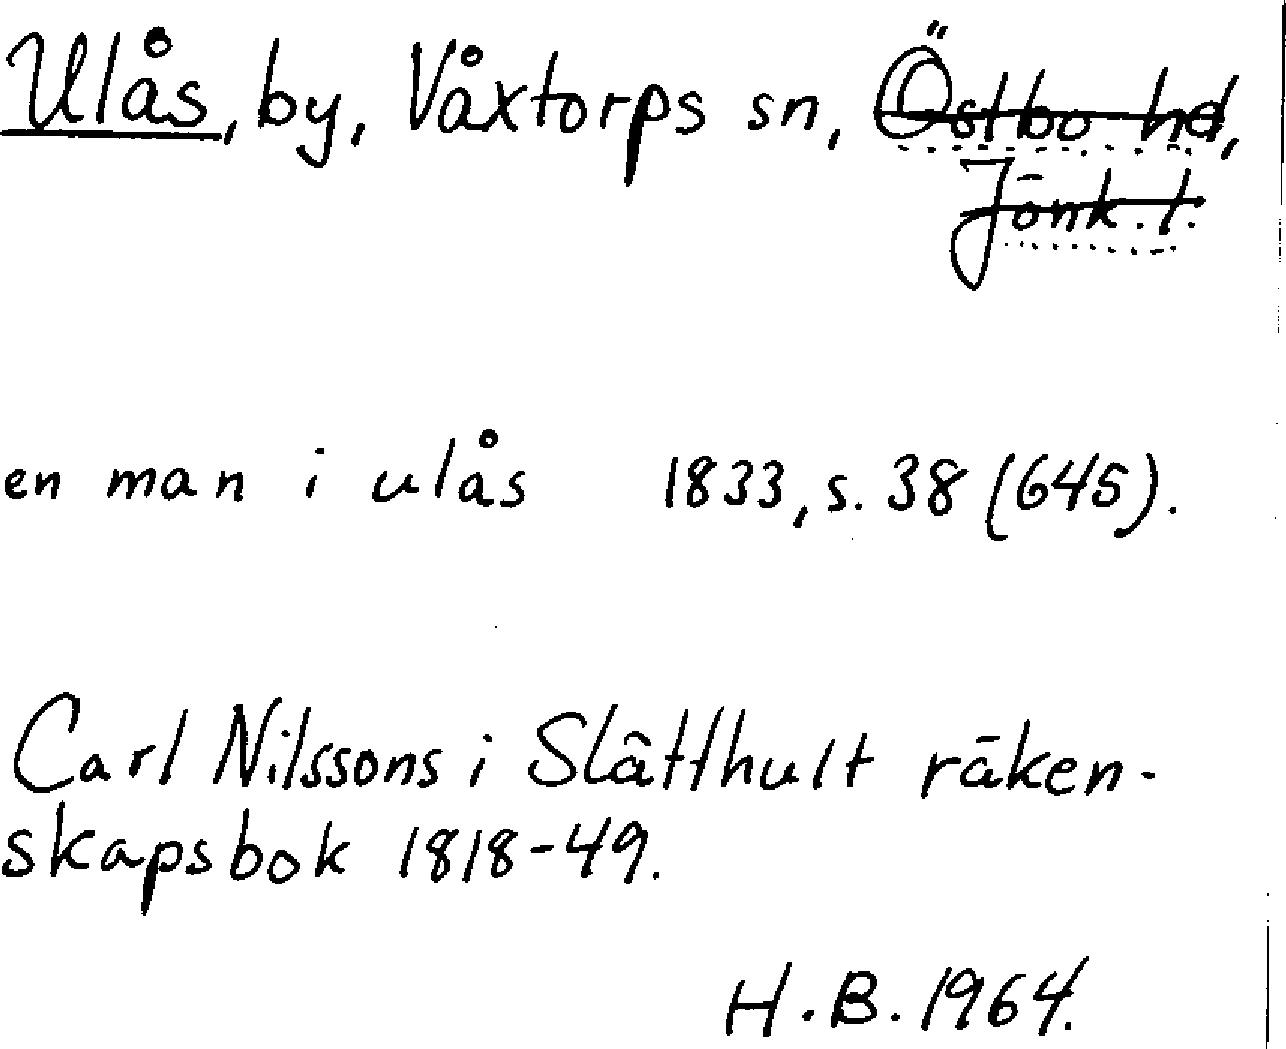 Ulås, by, Våxtorps sn, Östbo hd,
Jönk. l.
en man i ulås 1833, s. 38 (645).
Carl Nilssons i Slätthult räken-
skapsbok 1818-49.
H. B. 1964.